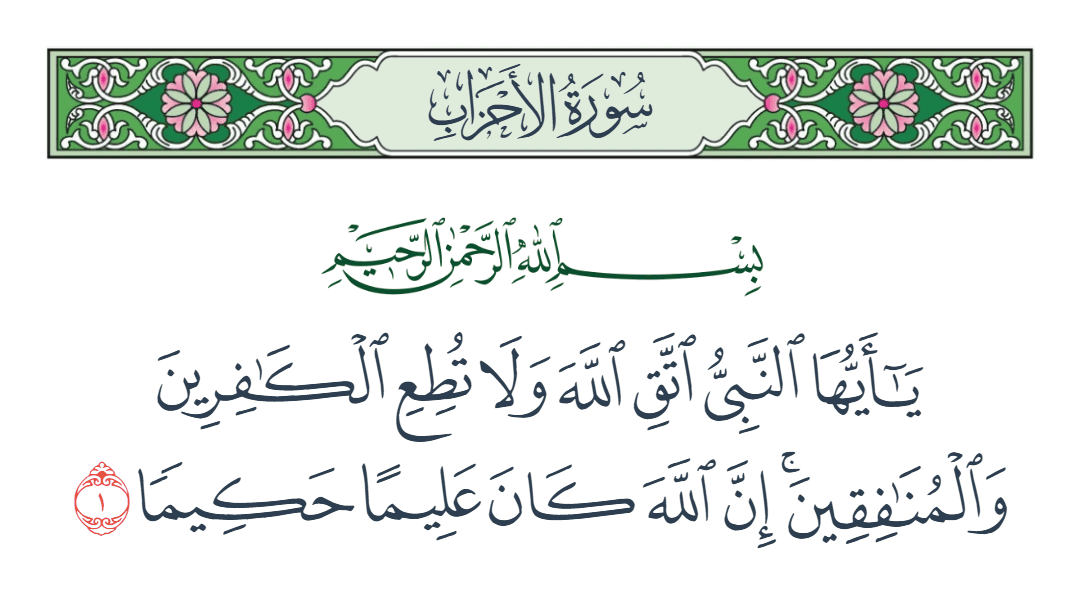 سُورَةُ الأَحْزَابِ
بِسْمِ ٱللَّهِ ٱلرَّحْمَٰنِ ٱلرَّحِيمِ
يَـٰٓأَيُّهَا ٱلنَّبِىُّ ٱتَّقِ ٱللَّهَ وَلَا تُطِعِ ٱلْكَـٰفِرِينَ
وَٱلْمُنَـٰفِقِينَ ۚ إِنَّ ٱللَّهَ كَانَ عَلِيمًا حَكِيمًا ١